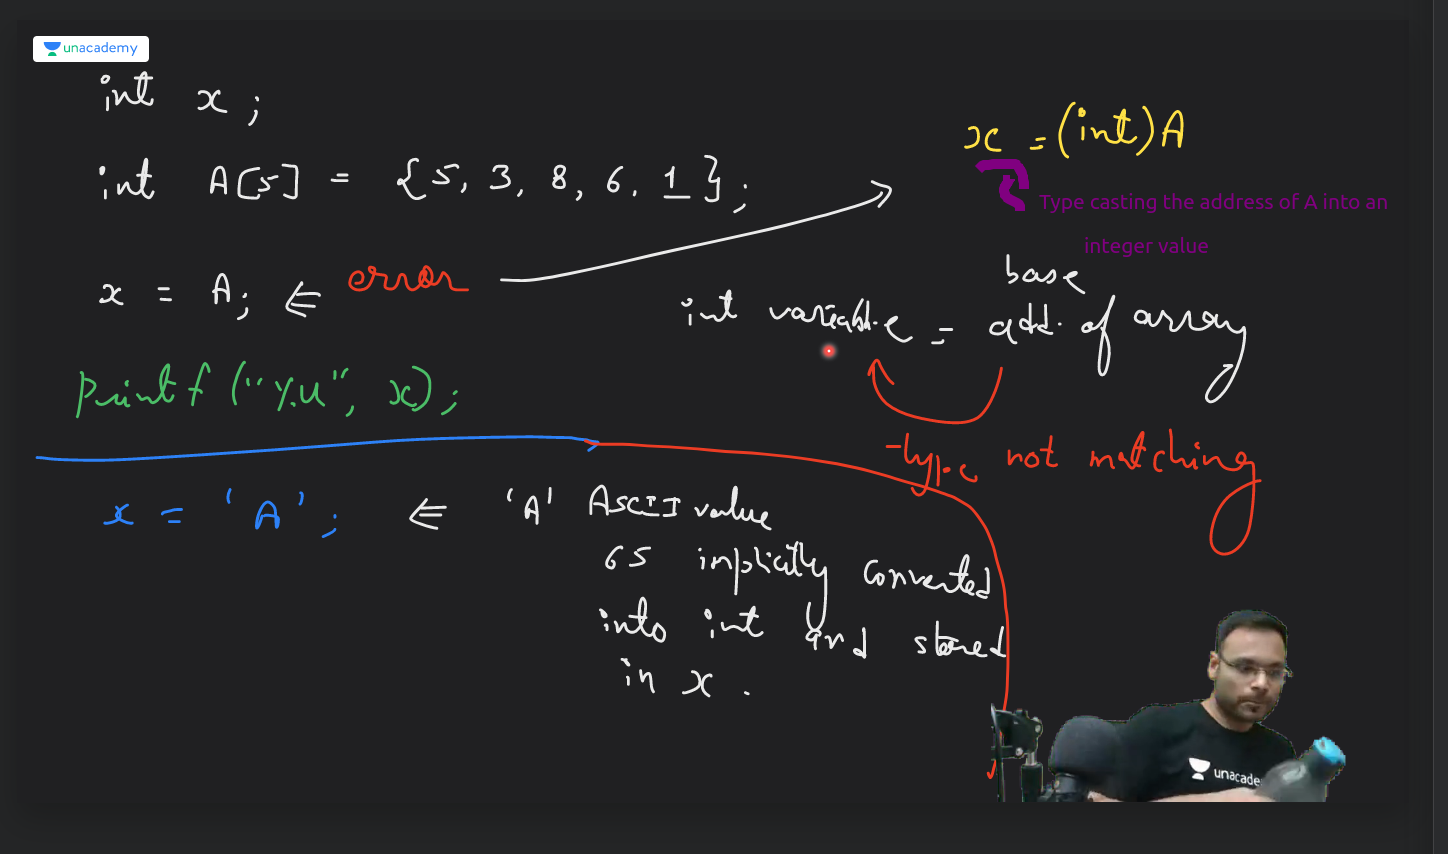 unacademy
int x;
int A[5] = {5, 3, 8, 6, 1};
x = A; ⇐ error
printf("%u", x);
x = (int)A
Type casting the address of A into an
integer value
int variable = base add. of array
type not matching
x = 'A'; ⇐ 'A' ASCII value
65 implicitly converted
into int and stored
in x.
unacade